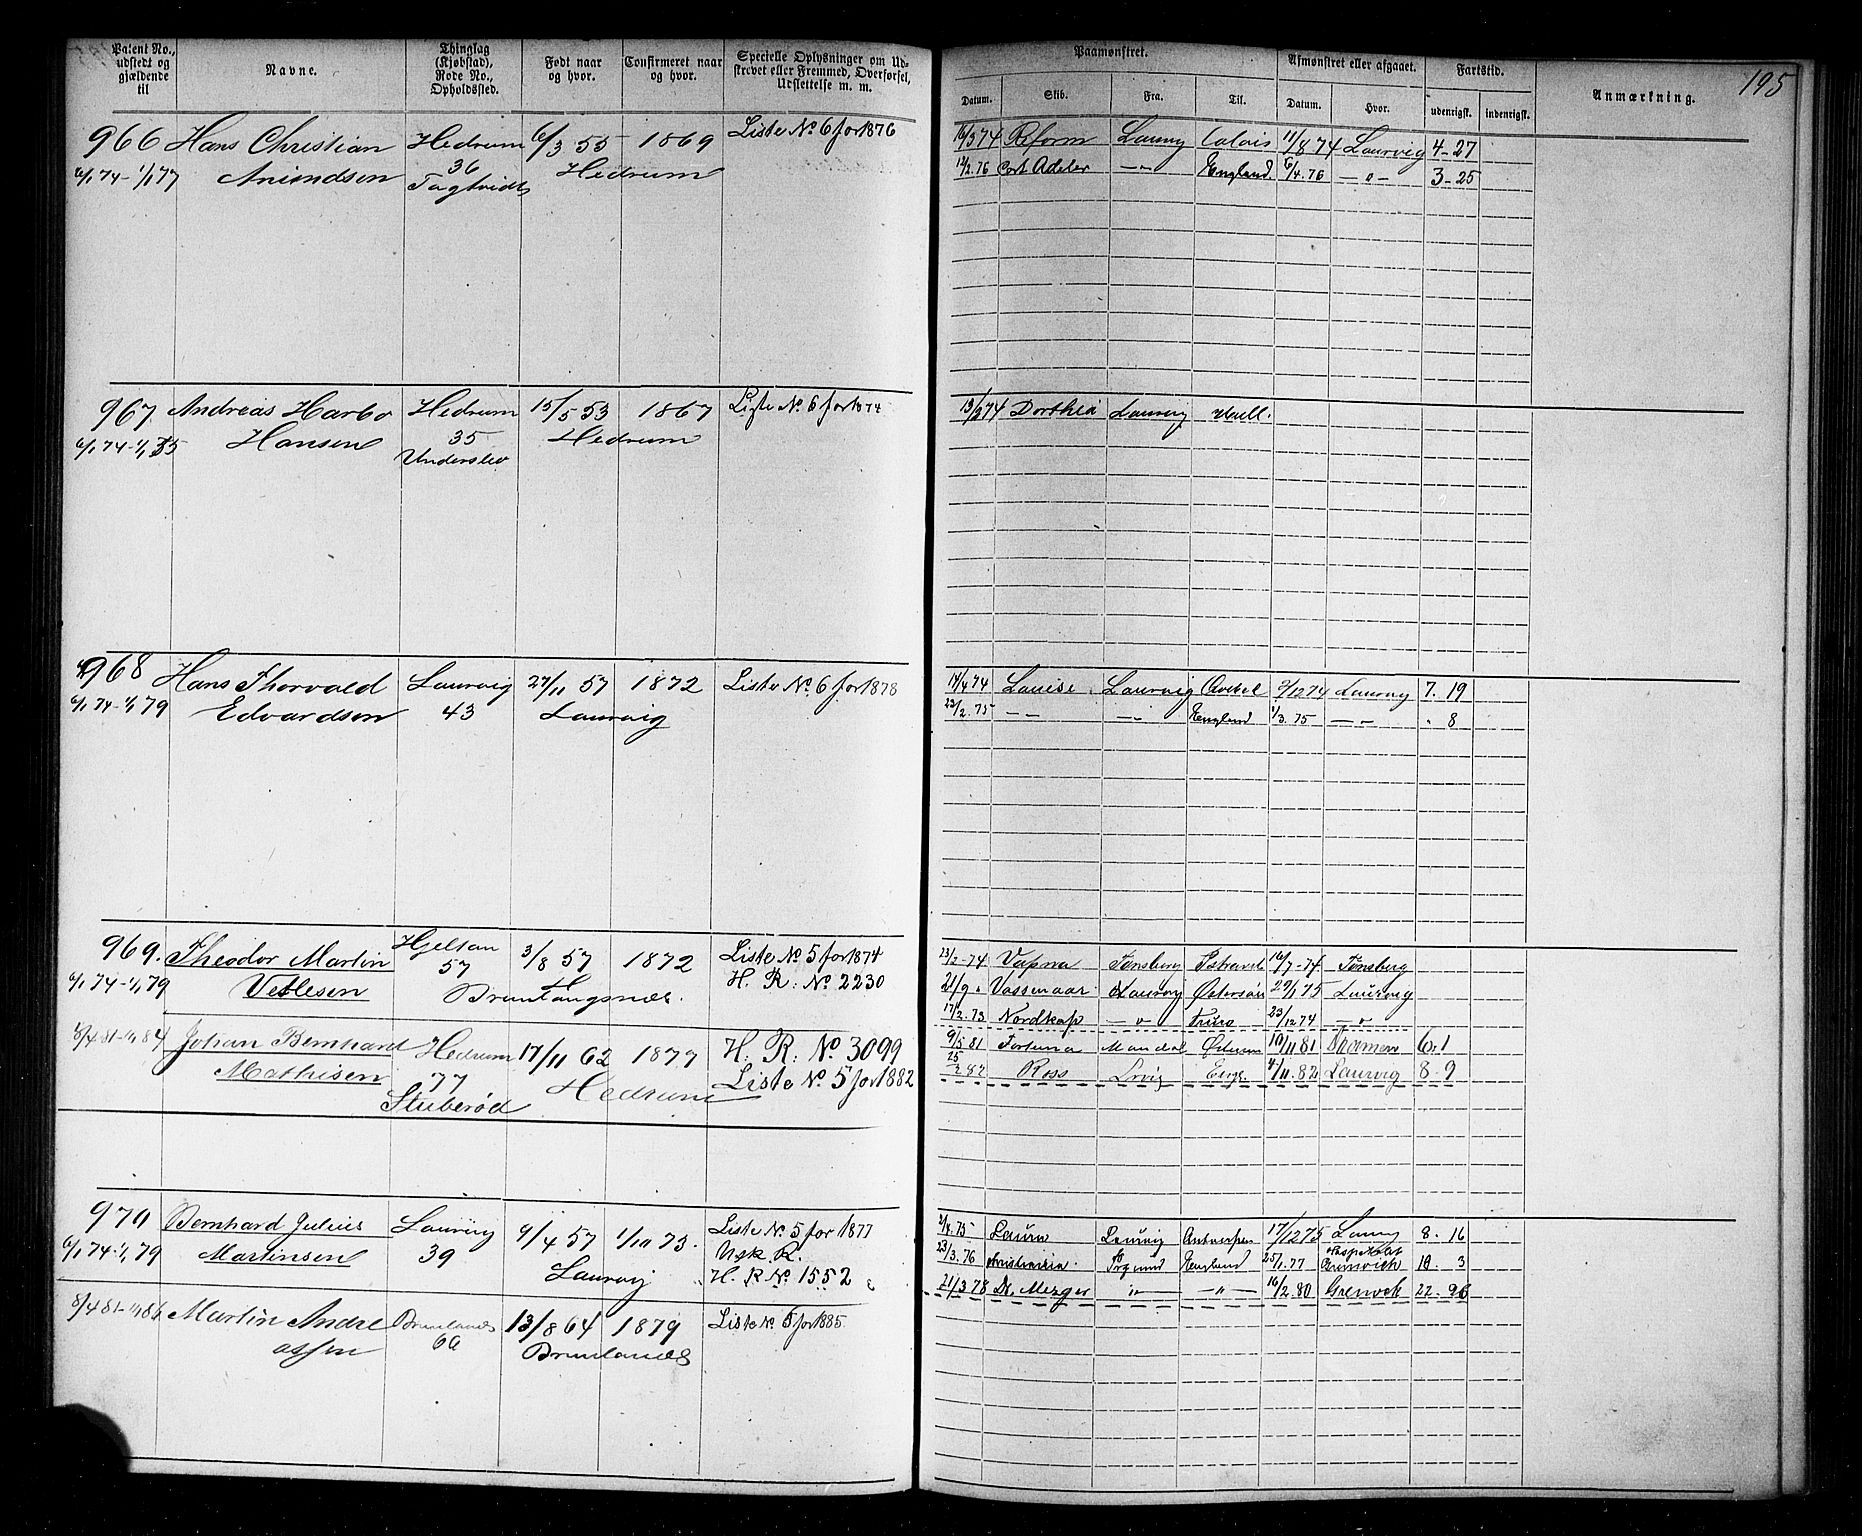 Patent No., udstedt og gjældende til
Navne.
Thinglag (Kjøbstad), Rode No., Opholdssted.
Født naar og hvor.
Confirmeret naar og hvor.
Specielle Oplysninger om Udskrevet eller Fremmed, Overførsel, Udslettelse m. m.
966 Hans Christian Hedrum 6/3 55 1869 Liste No 6 for 1876
6/1 74 - 1/1 77 Anundsen 36 Hedrum
Tagtvidt
967. Andreas Harbo Hedrum 15/5 53 1867 Liste No 6 for 1874
6/1 74 - 1/1 75 Hansen 35 Hedrum
Underslev
968 Hans Thorvald Laurvig 27/11 57 1872 Liste No 6 for 1878
6/1 74 - 1/1 79 Edvardsen 43 Laurvig
969. Theodor Martin Hjelsan 3/8 57 1872 Liste No 5 for 1874
6/1 74 - 1/1 79 Vetlesen 57 Brunlangsnæs. H. R. No 2230
8/4 81 - 1/1 84 Johan Bernhard Hedrum 17/11 62 1877 H. R. No 3099
Mathisen 77 Hedrum Liste No 5 for 1882
Stuberød
970 Bernhard Julius Laurvig 9/4 57 1/10 73. Liste No 5 for 1877
6/1 74 - 1/1 79 Martinsen 39 Laurvig Udsk R.
H. R No 1552
8/4 81 - 1/1 86 Martin Andre Brunlanæs 13/8 64 1879 Liste No 5 for 1885.
assen 60 Brunlanæs
195
Paamønstret.
Afmønstret eller afgaaet.
Fartstid.
Anmærkning.
Datum. Skib. Fra. Til. Datum. Hvor. udenrigsk. indenrigsk.
16/3 74 Reform Laurvig Calais 11/8 74 Laurvig 4-27
12/2 76 Cort Adeler — England 6/4. 76 — " — 3-25
13/3 74 Dorthea Laurvig Hull.
14/4 74 Louise Laurvig 9/12 74 Laurvig 7. 19
23/2. 75 — — England 1/3. 75 — " — " 8
23/2-74 Vapna Tønsberg 16/7-74 Tønsberg
21/9 " Vassenaar Laurvig Østersøen 29/1 75 Laurvig
17/2. 73 Nordkap — " — Truro 23/12 74 — " —
9/5 81 Fortuna Mandal 10/11 81 Drammen 6. 1
25/2 82 Ross Lrvig 4/11. 82 Laurvig 8-9
2/4. 75 Laura Laurvig Antwerpen 17/12 75 Laurvig 8. 16
23/3. 76 Christiania England 25/1. 77 19. 3
21/3 78 Dr. Mezger " — " — 16/2 80 Grenock 22. 26